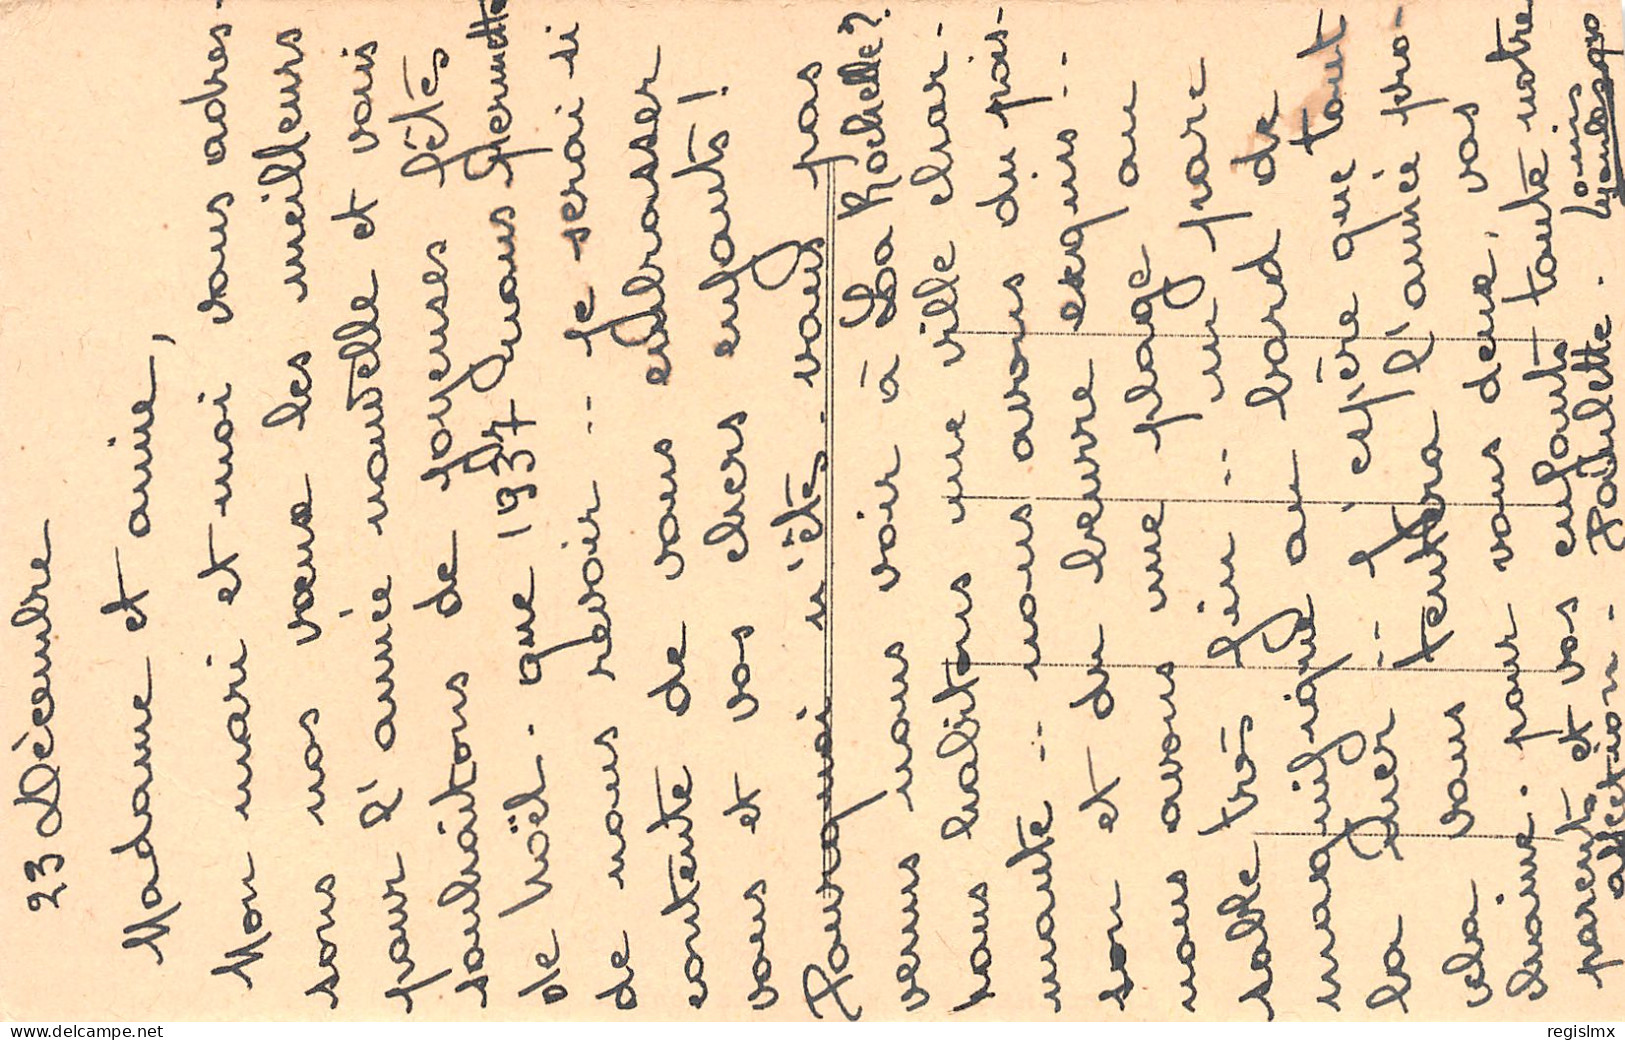 23 Décembre
Madame et amie,
Mon mari et moi vous adres-
sons nos vœux les meilleurs
pour l'année nouvelle et vous
souhaitons de joyeuses fêtes
de Noël. que 1937 nous permette
de nous revoir... je serai si
contente de vous embrasser
vous et vos chers enfants !
Pourquoi n'êtes-vous pas
venus nous voir à La Rochelle ?
nous habitons une ville char-
mante... nous avons du pois-
son et du beurre exquis...
nous avons une plage au
sable très fin... un parc
magnifique au bord de
la mer... j'espère que tout
cela vous tentera l'année pro-
chaine. pour vous deux, vos
parents et vos enfants toute notre
affection. Paulette. Louis
regislmx